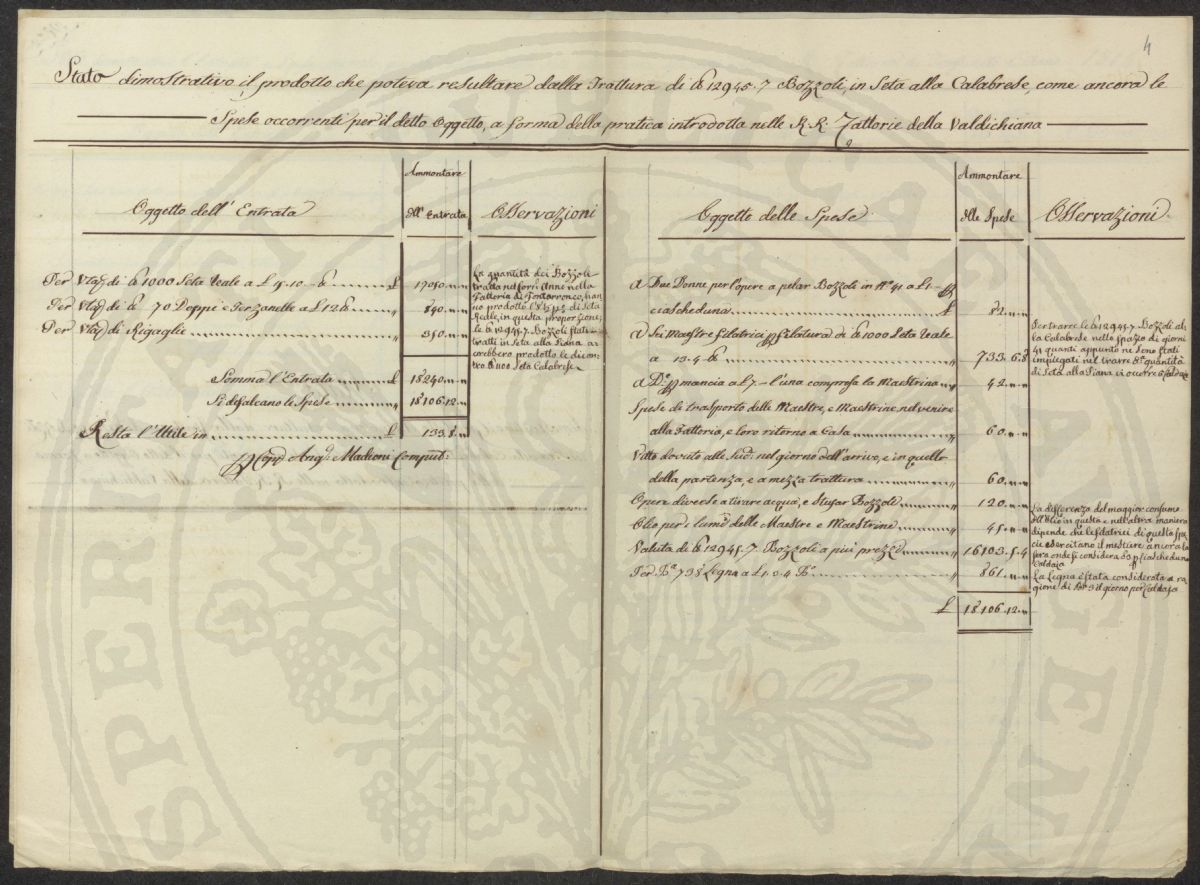 4
Stato dimostrativo il prodotto che poteva resultare dalla Trattura di ℔ 12945.7 Bozzoli, in Seta alla Calabrese, come ancora le
Spese occorrenti per il detto Oggetto, a forma della pratica introdotta nelle R R Fattorie della Valdichiana
Oggetto dell'Entrata
Ammontare
dell'Entrata
Osservazioni
Per Vta di ℔ 1000 Seta Reale a £ 9.10 ℔ £ 17050.„.„
Per Vta di ℔ 70 Doppi e Terzanelle a £ 12 ℔ „ 840.„.„
Per Vta di Rigaglie „ 350.„.„
Somma l'Entrata £ 18240.„.„
Si defalcano le Spese „ 18106.12.„
Resta l'Utile in £ 133.8.„
Ang. Madioni Comput:
La quantità dei Bozzoli
tratta nel scors' Anno nella
Fattoria di Fontarronco, han
no prodotto di Seta
Reale, in questa proporzione,
le ℔ 12945.7. Bozzoli stati
tratti in Seta alla Piana, a
vrebbero prodotto le di con
tro ℔ 1100 Seta Calabrese
Oggetto delle Spese
Ammontare
delle Spese
Osservazioni
A Due Donne per l'opere a pelar Bozzoli in N° 41 a £ 1
ciascheduna £ 82.„.„
A Sei Maestre filatrici filatura di ℔ 1000 Seta Reale
a 13.4 ℔ „ 733.6.8
A D.e mancia a £ 7 l'una comprese le Maestrine „ 42.„.„
Spese di trasporto delle Maestre, e Maestrine nel venire
alla Fattoria, e loro ritorno a Casa „ 60.„.„
Vitto dovuto alle Sud: nel giorno dell'arrivo, e in quello
della partenza, e a mezza trattura „ 60.„.„
Opere diverse a tirare acqua, e Stufar Bozzoli „ 120.„.„
Olio per i lumi delle Maestre e Maestrine „ 45.„.„
Valuta di ℔ 12945.7. Bozzoli a più prezzi „ 16103.5.4
Per 738 Legna a £ 1.3.4 „ 861.„.„
£ 18106.12.„
Per trarre le ℔ 12945.7. Bozzoli al
la Calabrese nello spazio di giorni
41 quanti appunto ne sono stati
impiegati nel trarre d.a quantità
di Seta alla Piana vi occorre 6 Caldaje
La differenza del maggior consumo
dell'Olio in questa e nell'altra maniera
dipende che le filatrici di questa spe
cie esercitano il mestiere ancora la
sera onde si considera ciascheduna
Caldaja
La Legna è stata considerata a ra
gione di 3 il giorno per Caldaja